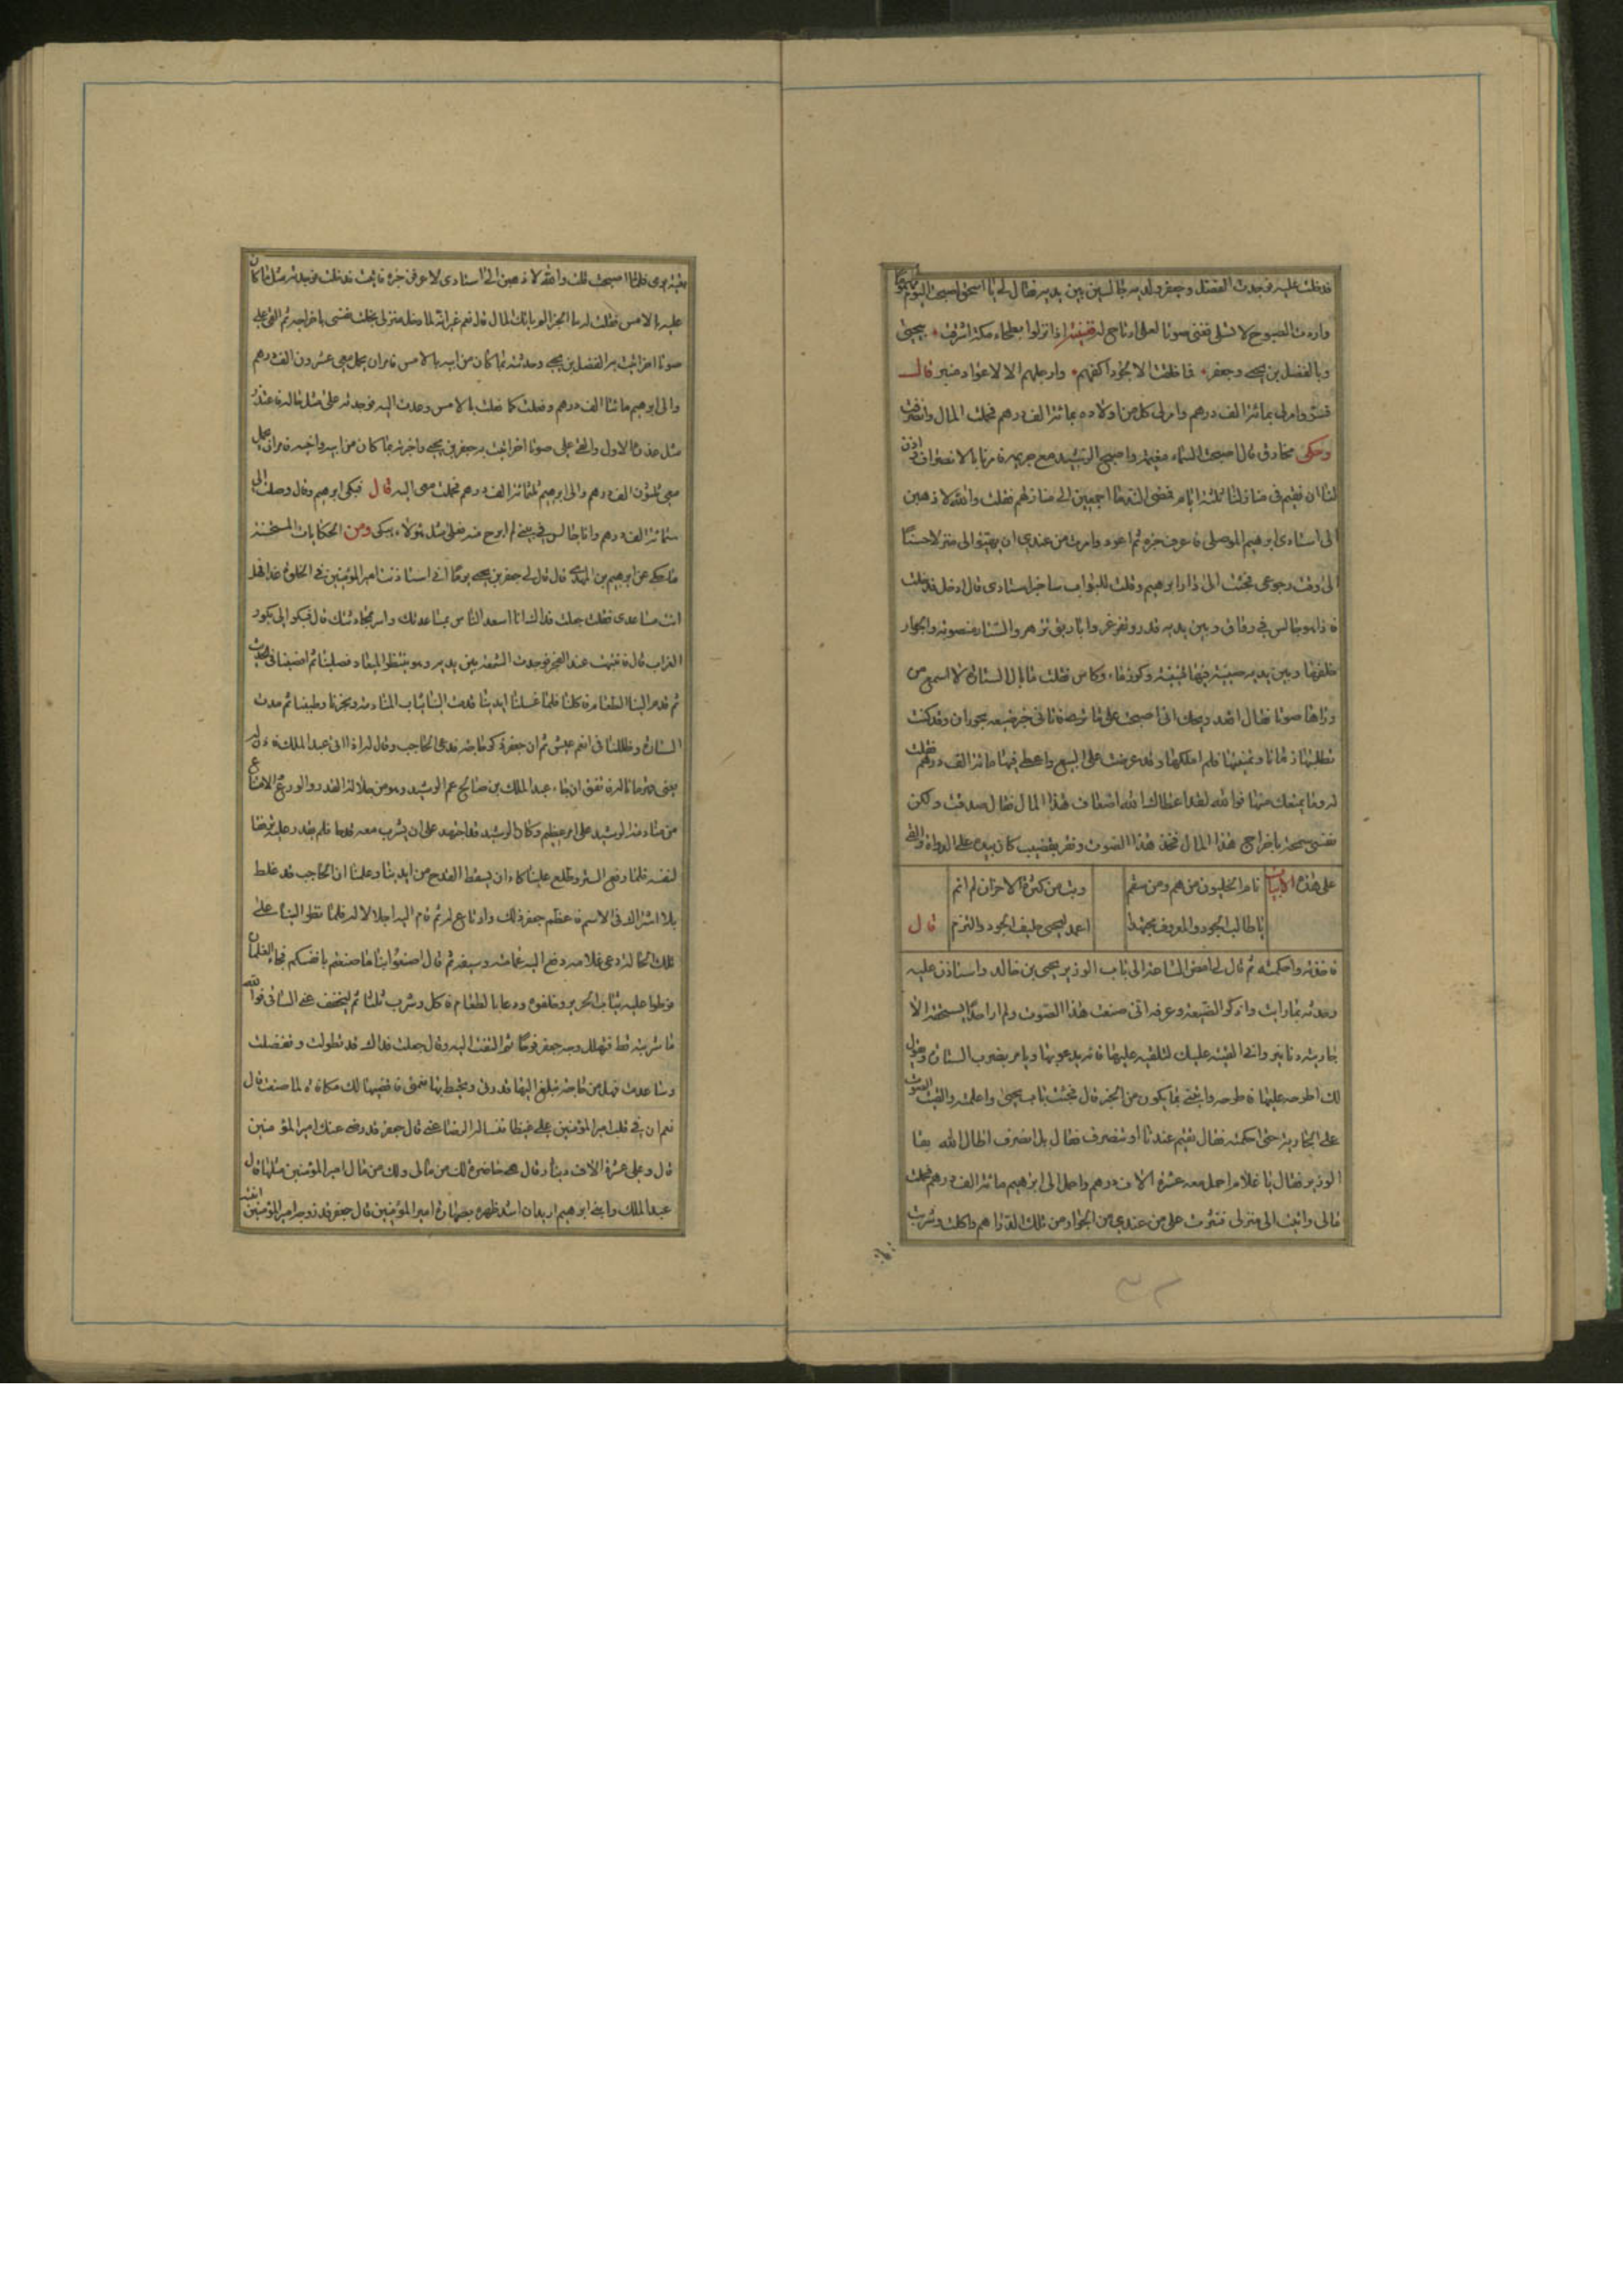 فدخلت عليه فوجدت الفضل وجعفر ولديه جالسين بين يديه فقال لي يا اسحق اصبحت اليوم مهموما
واردت الصبوح لاتسلى فغنني صوتا لعلي ارتاح له فغنيته اذا نزلوا بطحاء مكة اشرقت • بيحيى
وبالفضل بن يحيى وجعفر • فما خلقت الا لجود اكفهم • وارجلهم الا لاعواد منبر قال
فسر وامر لي بمائة الف درهم وامر لي كل من اولاده بمائة الف درهم فحملت المال وانصرفت
وحكى مخارق قال اصبحت السماء مغيمة واصبح الرشيد مع حريمه فامرنا بالانصراف واذن
لنا ان نقيم في منازلنا ثلثة ايام فمضى الندماء اجمعين الى منازلهم فقلت والله لاذهبن
الى استادى ابرهيم الموصلى فاعرف خبره ثم اعود وامرت من عندى ان يهيئوا لى منزلا حسنا
الى وقت رجوعى فجئت الى دار ابرهيم وقلت للبواب ما خبر استادى قال ادخل فدخلت
فاذا هو جالس في رواق وبين يديه قدور تغرغر واباريق تزهر والستارة منصوبة والجوار
خلفها وبين يديه صينية فيها قنينة وكوز ماء وكاس فقلت ما بال الستارة لا اسمع من
وراها صوتا فقال اقعد ويحك انى اصبحت على فاتانى خبر ضيعه بجوارى وقد كنت
تطلبتها زمانا وتمنيتها فلم املكها وقد عرضت على البيع واعطى فيها مائة الف درهم فقلت
له وما يمنعك منها فوالله لقد اعطاك الله اضعاف هذا المال فقال صدقت ولكن
نفسى سمحة باخراج هذا المال فخذ هذا الصوت ونقر بقضيب كان بيده على الدواة والقى
على هذه الابيات نام الخليون من هم ومن سقم وبت من كثرة الاحزان لم انم
يا طالب الجود والمعروف مجتهدا اعمد ليحيى حليف الجود والكرم قال
فاخذته واحكمته ثم قال لى امض الساعة الى باب الوزير يحيى بن خالد واستاذن عليه
وحدثه بما رايت واذكر الضيعة وعرفه انى صنعت هذا الصوت ولم ار احدا يستحقه الا
جاريته دنانير وانى القيته عليك لتلقيه عليها فانه يدعو بها ويامر بضرب الستارة ويقول
لك اطرحه عليها فاطرحه وايتنى بما يكون من الخبر قال فجئت باب يحيى واعلمته والقيت الصوت
على الجارية حتى احكمته فقال تقيم عندنا او تنصرف فقال بل انصرف اطال الله بقا
الوزير فقال يا غلام احمل معه عشرة الاف درهم واحمل الى ابرهيم مائة الف درهم فحملت
مالى واتيت الى منزلى فنثرت على من عندى من الجوار من تلك الدراهم واكلت وشربت
بقية يومى فلما اصبحت قلت والله لاذهبن الى استادى لاعرفن خبره فاتيت فدخلت فوجدته مثل ما كان
عليه بالامس فقلت له ما الخبر الم ياتك المال قال نعم غير انه لما دخل منزلى بخلت نفسى باخراجه ثم القى على
صوتا اخر اتيت به الفضل بن يحيى وحدثته بما كان من ابيه بالامس فامر ان يحمل معى عشرون الف درهم
والى ابرهيم مائتا الف درهم وفعلت كما فعلت بالامس وعدت اليه فوجدته على مثل حاله فاعتذر
مثل عذره الاول والقى على صوتا اخر اتيت به جعفر بن يحيى واخبرته بما كان من ابيه واخيه فامر ان يحمل
معى ثلثون الف درهم والى ابرهيم ثلثمائة الف درهم فحملت معى اليه قال فبكى ابرهيم وقال وصلت الى
ستمائة الف درهم وانا جالس في بيتى لم ابرح منه فعلى مثل هؤلاء يبكى ومن الحكايات المستحسنة
ما حكى عن ابرهيم بن المهدى قال قال لى جعفر بن يحيى يوما انى استاذنت امير المؤمنين فى الخلوة غدا فهل
انت مساعدى فقلت جعلت فداك انا اسعد الناس بمساعدتك واسر بمحادثتك قال فبكر الى بكور
الغراب قال فاتيت عند الفجر فوجدت الشمعة بين يديه وهو ينتظر الميعاد فصلينا ثم افضينا فى الحديث
ثم قدم الينا الطعام فاكلنا فلما غسلنا ايدينا قدمت الينا ثياب المنادمة وبخرنا وطيبنا ثم مدت
الستارة وظللنا فى انعم عيش ثم ان جعفر ذكر حاجة فدعى الحاجب وقال له اذا اتى عبد الملك فاذن له
يعنى قهرمانا له فاتفق ان جاء عبد الملك بن صالح عم الرشيد وهو من جلالة القدر والورع والامتناع
من منادمة الرشيد على امر عظيم وكان الرشيد قد اجتهد على ان يشرب معه قدحا فلم يقدر عليه ترفعا
لنفسه فلما رفع الستر وطلع علينا كاد ان يسقط القدح من ايدينا وعلمنا ان الحاجب قد غلط
بلا اشتراك فى الاسم فاعظم جعفر ذلك وارتاع له ثم قام اليه اجلالا له فلما نظر الينا على
تلك الحالة دعى غلامه دفع اليه عمامته وسيفه ثم قال اصنعوا بنا ما صنعتم بانفسكم فجاء الغلمان
فطرحوا عليه ثياب الحرير وخلقوه ودعا بالطعام فاكل وشرب ثلثا ثم ليخفف عنى الساقى فوالله
ما شربته قط فتهلل وجه جعفر فرحا ثم التفت اليه وقال جعلت فداك قد تطولت وتفضلت
وساعدت فهل من حاجة تبلغ اليها قدرتى وتحيط بها نعمتى فاقضيها لك مكافاة لما صنعت قال
نعم ان فى قلب امير المؤمنين على غيظا فتساله الرضا عنى قال جعفر قد رضى عنك امير المؤمنين
قال وعلى عشرة الاف دينار قال هى حاضرة لك من مالى ولك من مال امير المؤمنين مثلها قال
عبد الملك وابنى ابرهيم اريد ان اشد ظهره بمصاهرة امير المؤمنين قال جعفر قد زوجه امير المؤمنين ابنته